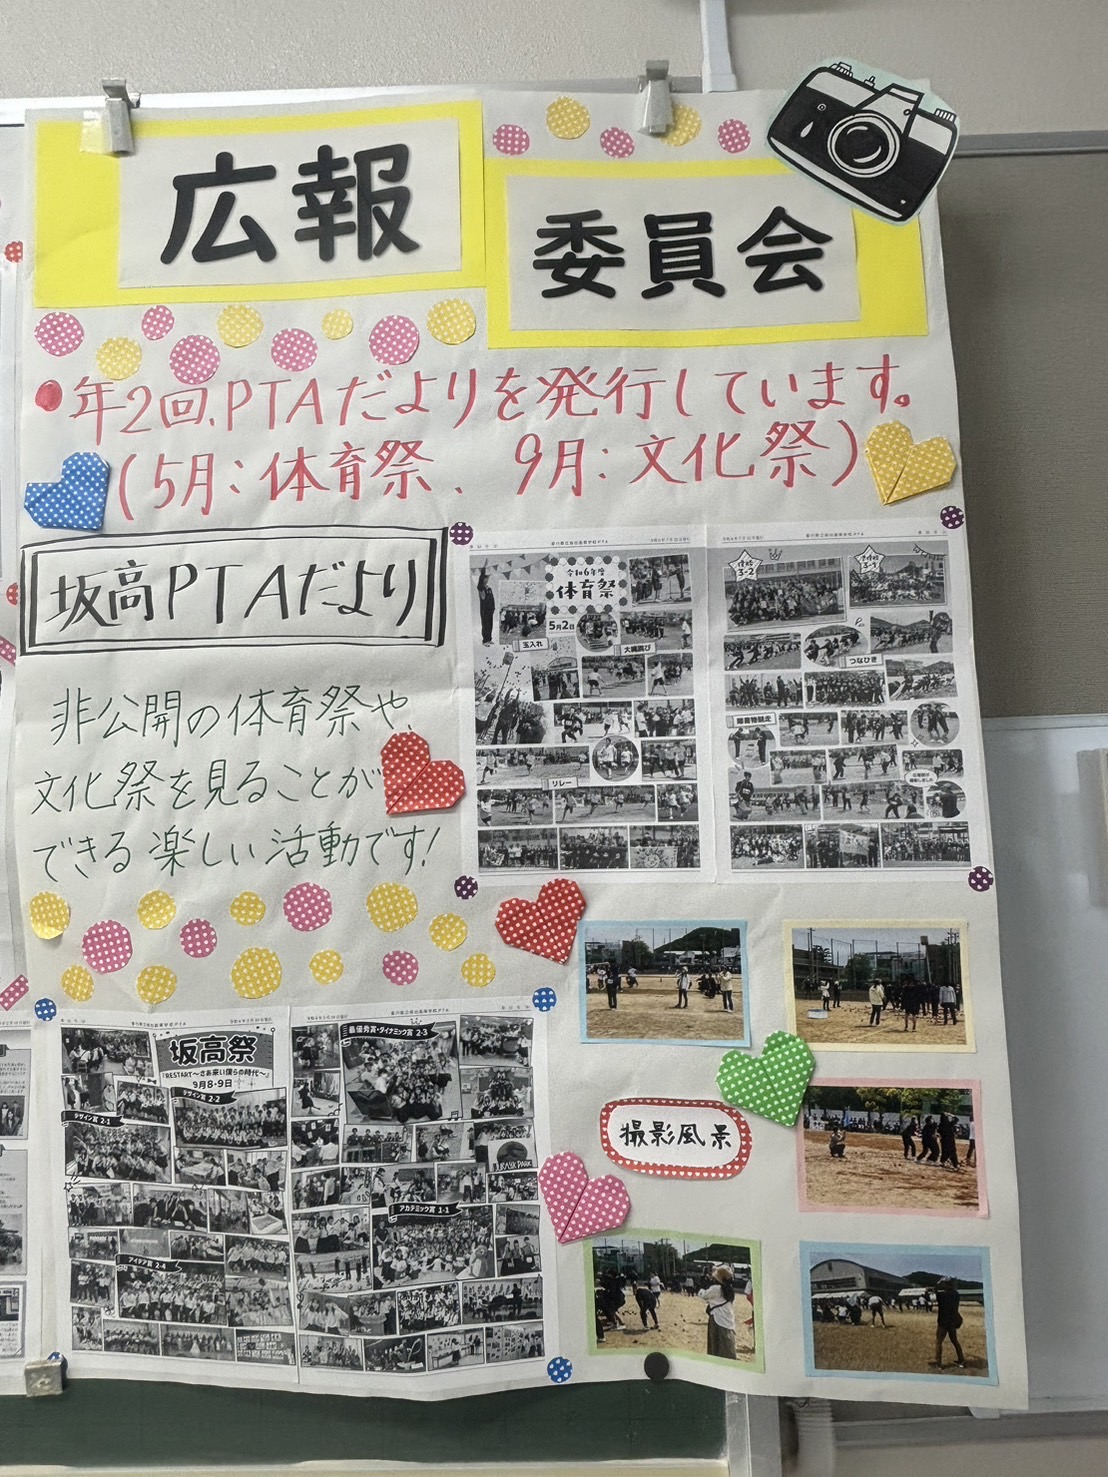 広報
委員会
●年2回、PTAだよりを発行しています。
(5月:体育祭、9月:文化祭)
坂高PTAだより
非公開の体育祭や、
文化祭を見ることが
できる楽しい活動です!
令和6年度
体育祭
5月2日
玉入れ
大縄跳び
リレー
3-2
つなひき
障害物競走
坂高祭
『RESTART〜さあ来い僕らの時代〜』
9月8・9日
デザイン賞 2-2
デザイン賞 2-1
アイデア賞 2-4
最優秀賞・ダイナミック賞 2-3
アカデミック賞 1-1
撮影風景